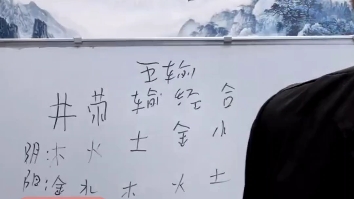 五输
井荥输经合
阴:木火土金水
阳:金水木火土